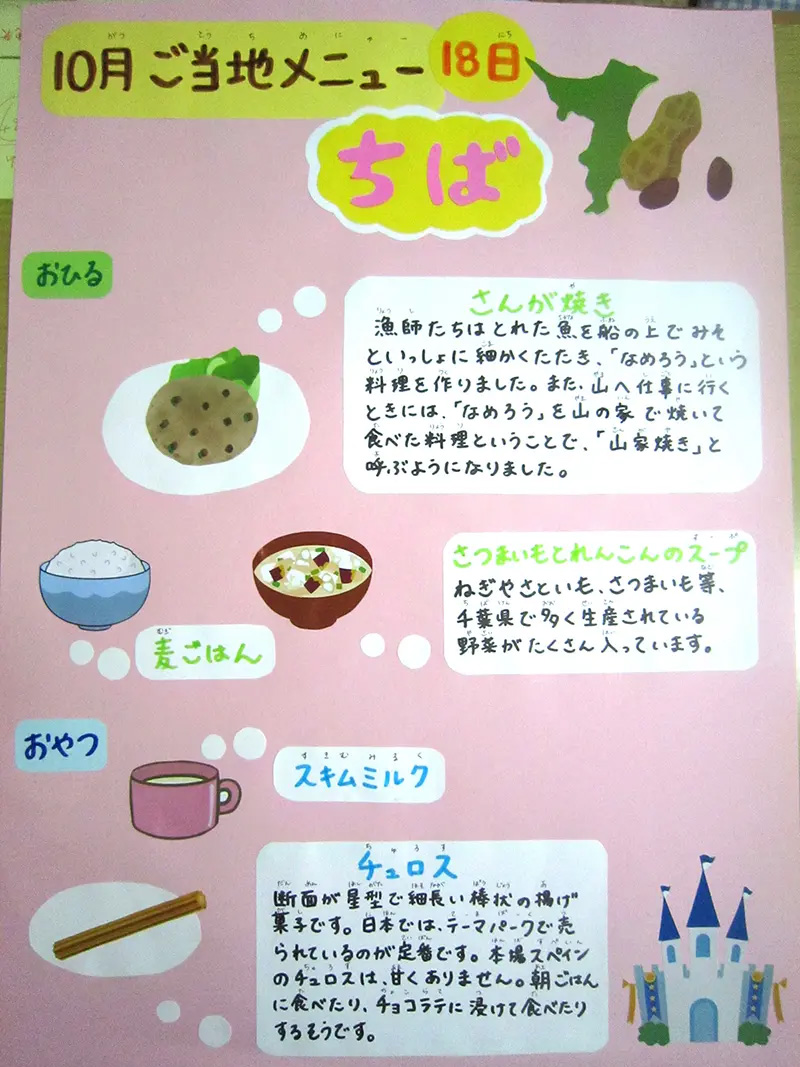 10月ご当地メニュー 18日
ちば
おひる
さんが焼き
漁師たちはとれた魚を船の上でみそ
といっしょに細かくたたき、「なめろう」という
料理を作りました。また、山へ仕事に行く
ときには、「なめろう」を山の家で焼いて
食べた料理ということで、「山家焼き」と
呼ぶようになりました。
麦ごはん
さつまいもとれんこんのスープ
ねぎやさといも、さつまいも等、
千葉県で多く生産されている
野菜がたくさん入っています。
おやつ
スキムミルク
チュロス
断面が星型で細長い棒状の揚げ
菓子です。日本では、テーマパークで売
られているのが定番です。本場スペイン
のチュロスは、甘くありません。朝ごはん
に食べたり、チョコラテに浸けて食べたり
するそうです。